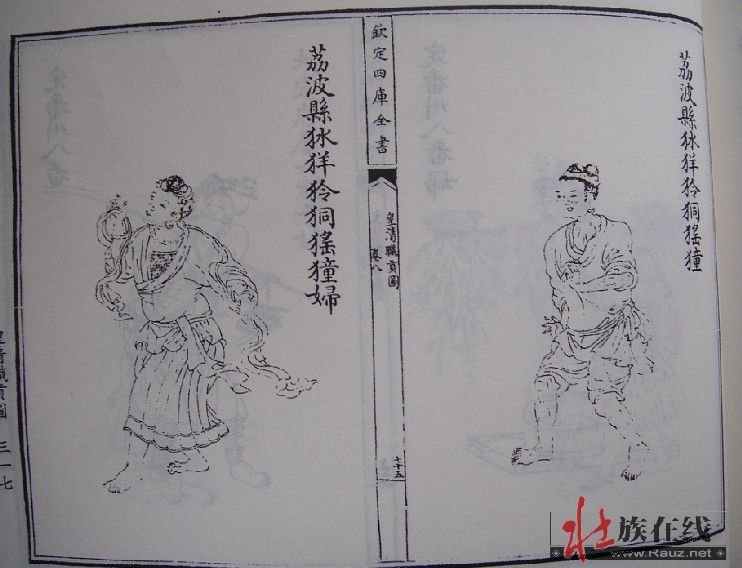 荔波縣狇𤞏狑狪猺獞
欽定四庫全書
皇清職貢圖
卷八
七十五
荔波縣狇𤞏狑狪猺獞婦
皇清職貢圖 三一七
壮族在线
www.Rauz.net